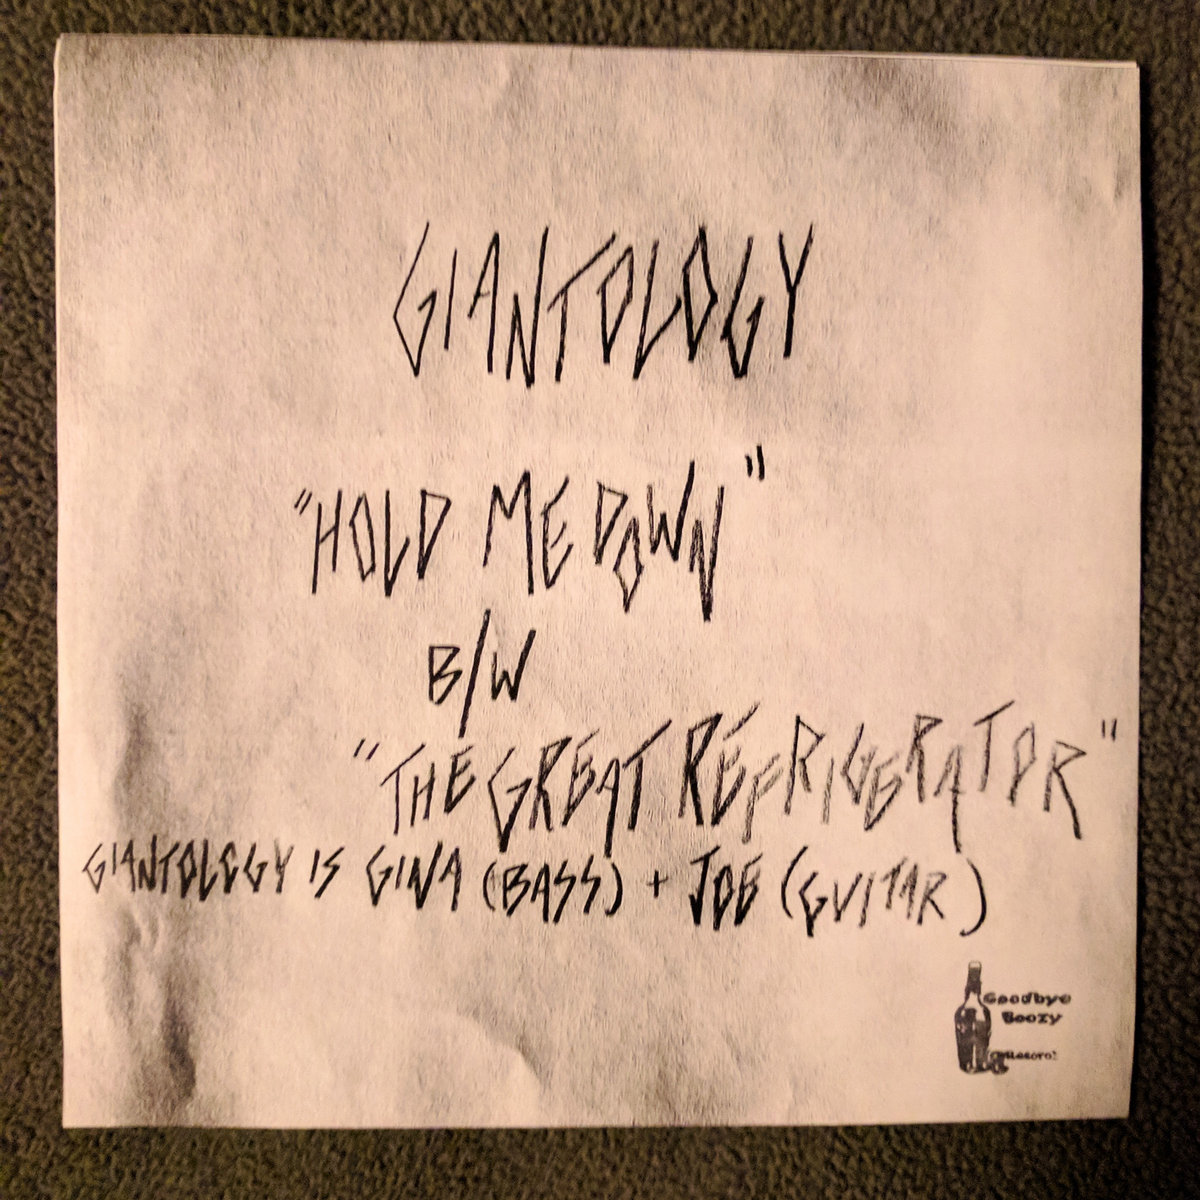 GIANTOLOGY
"HOLD ME DOWN"
B/W
"THE GREAT REFRIGERATOR"
GIANTOLOGY IS GINA (BASS) + JOE (GUITAR)
Goodbye
Boozy